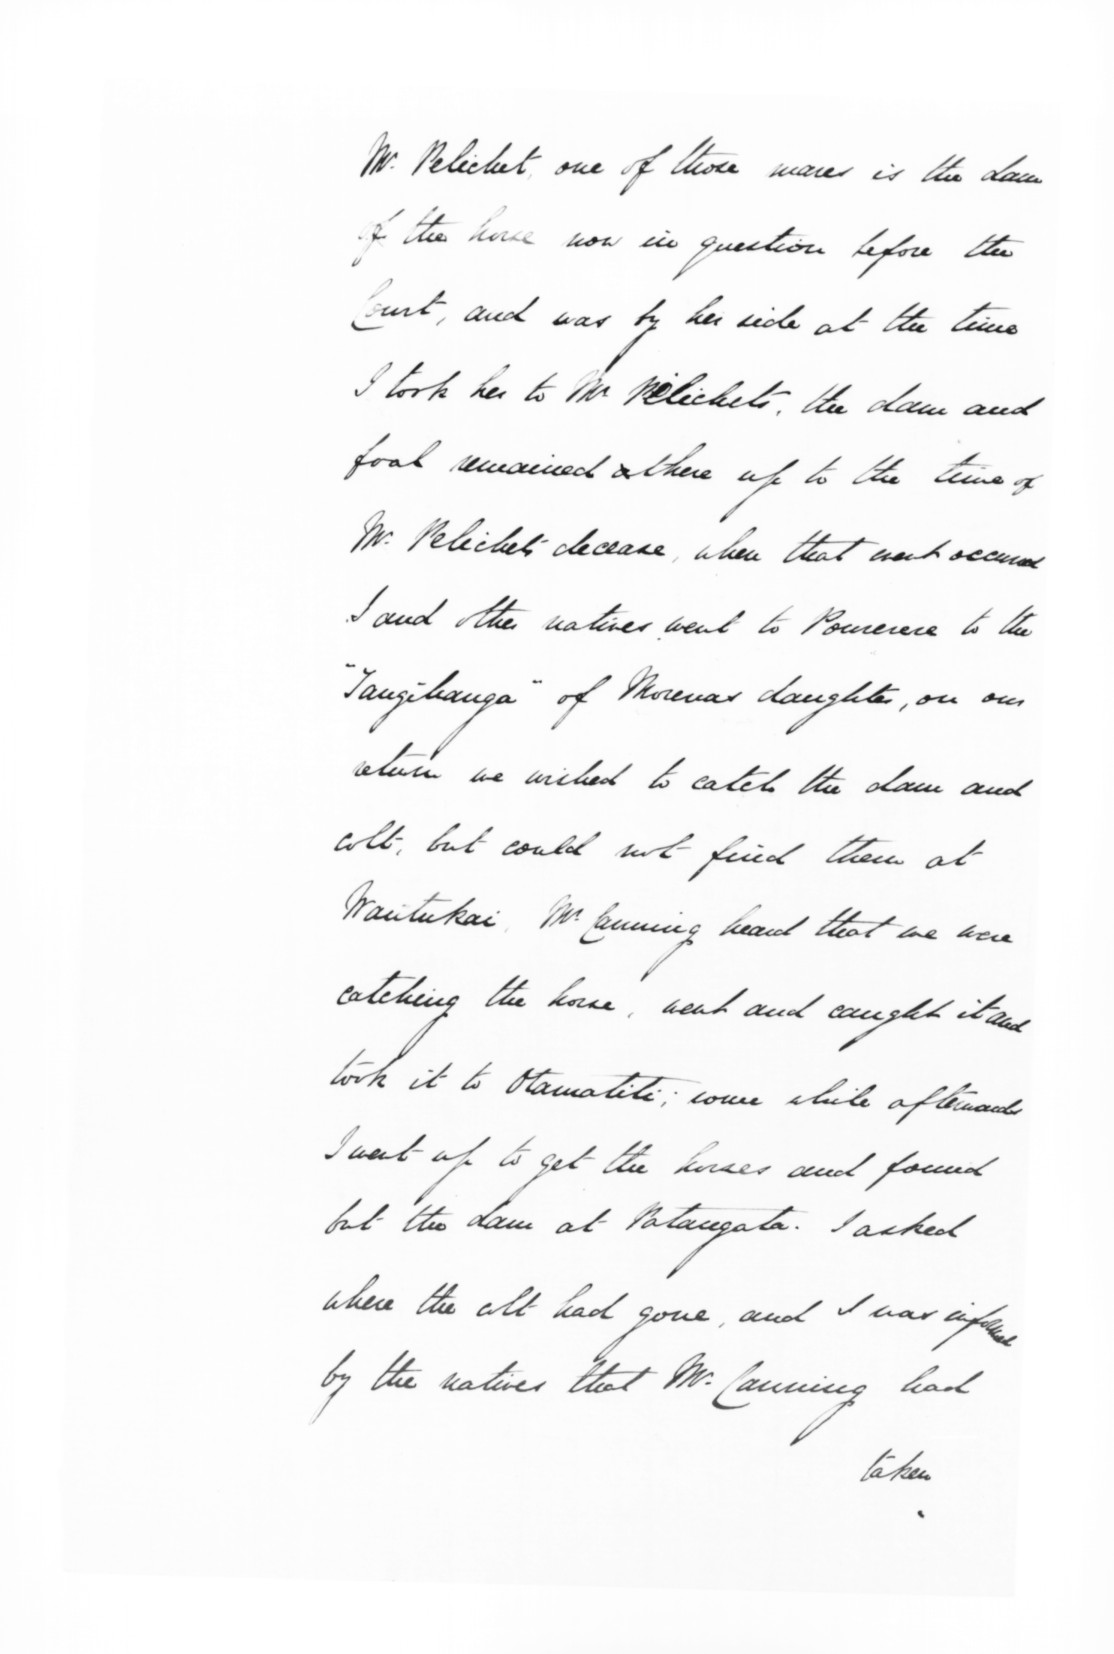 Mr. Pelichet, one of those mares is the dam
of the horse now in question before the
Court, and was by her side at the time
I took her to Mr Pelichets, the dam and
foal remained there up to the time of
Mr. Pelichets decease, when that event occurred
I and other natives went to Pourerere to the
"Tangihanga" of Morenas daughter, on our
return we wished to catch the dam and
colt, but could not find them at
Waitukai, Mr. Canning heard that we were
catching the horse, went and caught it and
took it to Otamatiti; some while afterwards
I went up to get the horses and found
but the dam at Patangata. I asked
where the colt had gone, and I was informed
by the natives that Mr. Canning had
taken